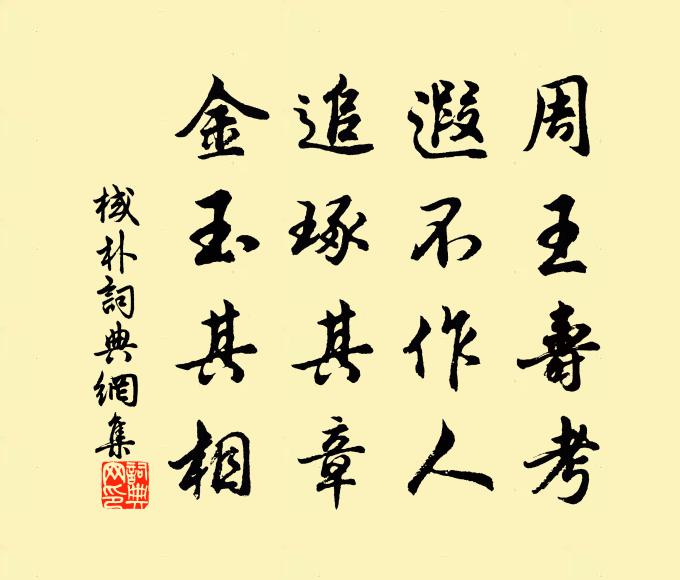 周王壽考
遐不作人
追琢其章
金玉其相
棫朴詞典網集
詞典网印